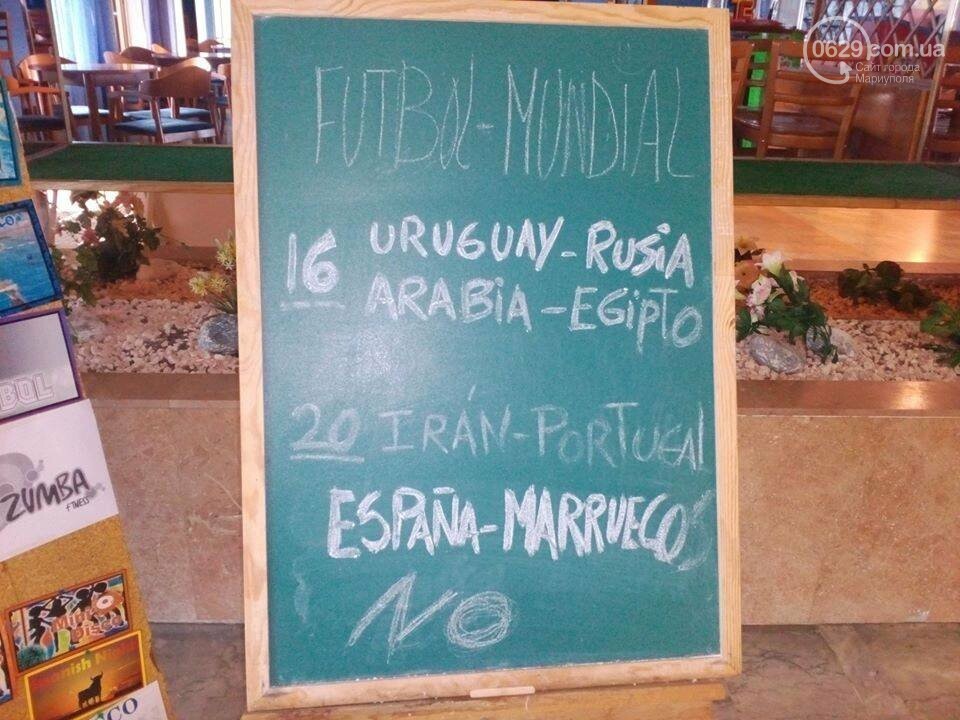 0629.com.ua
Сайт города
Мариуполя
FUTBOL-MUNDIAL
16 URUGUAY-RUSIA
ARABIA-EGIPTO
20 IRÁN-PORTUGAL
ESPAÑA-MARRUECOS
NO
BOL
ZUMBA
FITNESS
Mini
Disco